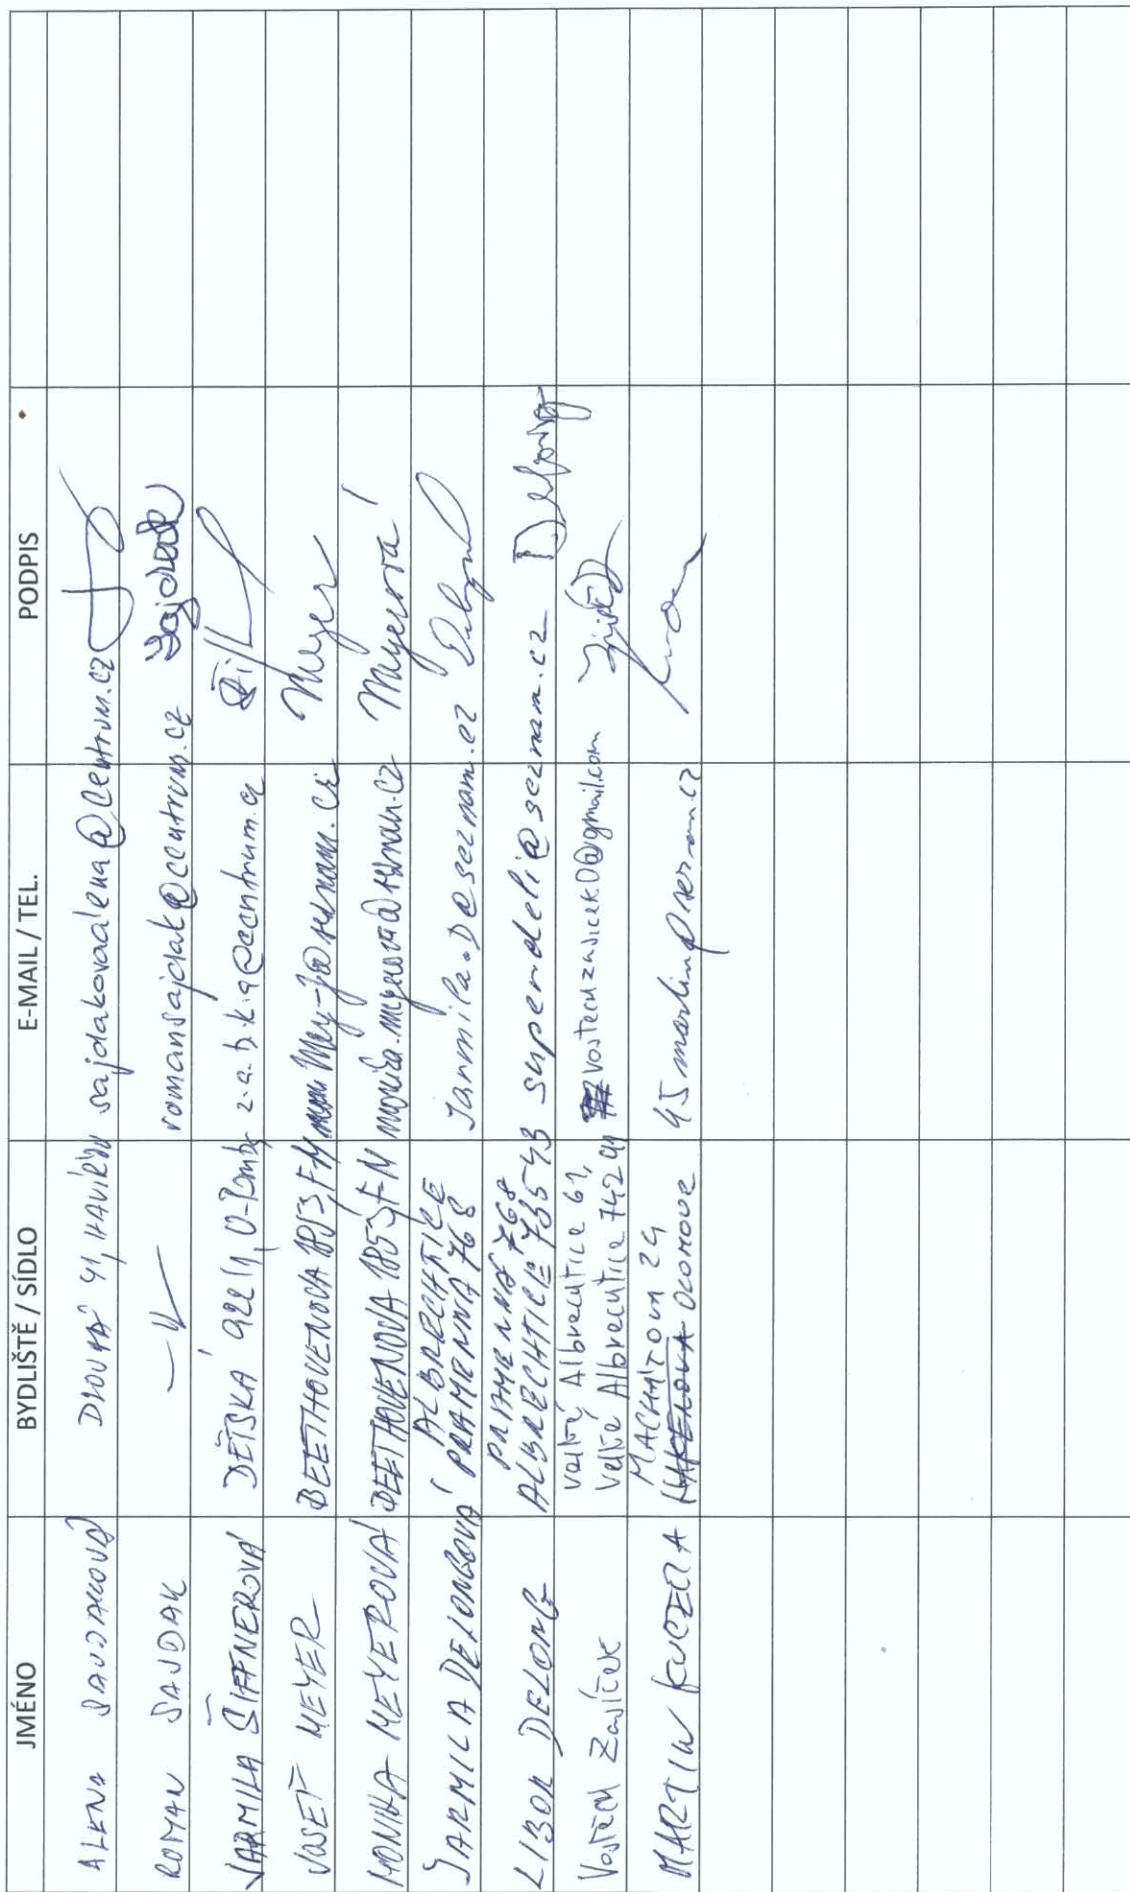 JMÉNO BYDLIŠTĚ / SÍDLO E-MAIL / TEL. PODPIS
ALENA SAJDAKOVÁ DLOUHÁ 41, HAVÍŘOV sajdakovaalena@centrum.cz
ROMAN SAJDAK —〃— romansajdak@centrum.cz Sajdak
JARMILA ŠIFFNEROVÁ DĚTSKÁ 922/1, O-Poruba z.a.b.k.a@centrum.cz
JOSEF MEYER BEETHOVENOVA 1853, FM Mey-j@seznam.cz Meyer
MONIKA MEYEROVÁ BEETHOVENOVA 1853, FM monika.meyerova@seznam.cz Meyerová
JARMILA DELONGOVÁ ALBRECHTICE
PRAMENNÁ 768 Jarmila.D@seznam.cz
LIBOR DELONG PRAMENNÁ 768
ALBRECHTICE 73543 superdeli@seznam.cz Delong
Vojtěch Zajíček Velké Albrechtice 61,
Velké Albrechtice 74291 vojtechzajicek0@gmail.com
MARTIN KUČERA MÁCHALOVA 24
OLOMOUC 45martin@seznam.cz